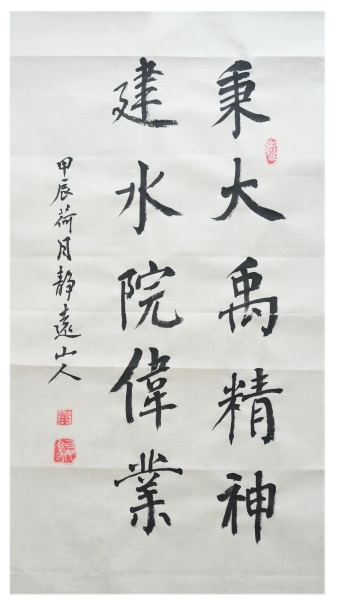 秉大禹精神
建水院偉業
甲辰荷月靜遠山人